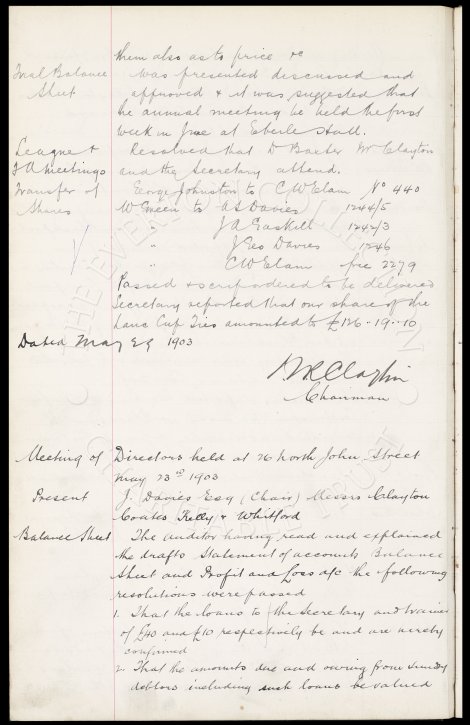 them also as to price &c
Trial Balance Sheet was presented discussed and
approved & it was suggested that
the annual meeting be held the first
week in June at Eberle Hall.
League & F A Meetings Resolved that Dr Baxter Mr Clayton
and the Secretary attend.
Transfer of Shares George Johnston to C W Elam No 440
W Green to A S Davies 1244/5
" J A Gaskell 1242/3
" J Geo Davies 1246
" C W Elam 2279
Passed & scrip ordered to be delivered
Secretary reported that our share of the
Lanc Cup Ties amounted to £126-19-10
Dated May 29 1903
W R Clayton
Chairman
Meeting of Directors held at 26 North John Street
May 23rd 1903
Present J. Davies Esq (Chair) Messrs Clayton
Coates Kelly & Whitford
Balance Sheet The auditor having read and explained
the drafts Statement of accounts Balance
Sheet and Profit and Loss a/c the following
resolutions were passed
1. That the loans to the Secretary and trainer
of £40 and £10 respectively be and are hereby
confirmed
2. That the amounts due and owing from sundry
debtors including such loans be valued
THE EVERTON
TRUST